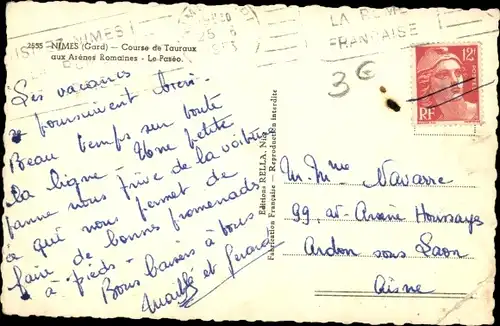 LA
FRANÇAISE
2555 - NIMES (Gard) — Course de Tauraux
aux Arènes Romaines - Le Paséo.
12F
RF
3€
Les vacances
se poursuivent bien.
Beau temps sur toute
la ligne - Une petite
panne nous prive de la voiture
ce qui nous permet de
faire de bonnes promenades
à pieds -
Bons baisers à tous
et Gérard
Editions RELLA, Nice
Fabrication Française - Reproduction interdite
M. Mme Navarre
99, av Arsène Houssaye
Ardon sous Laon
Aisne